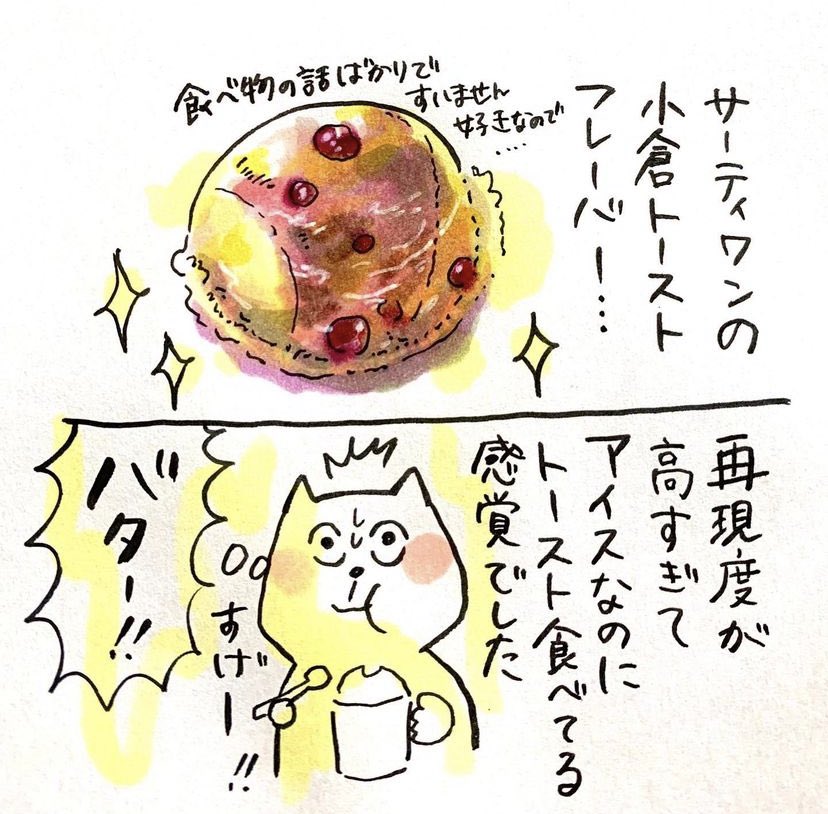 サーティワンの
小倉トースト
フレーバー!…
食べ物の話ばかりで
すいません
好きなので
....
再現度が
高すぎて
アイスなのに
トースト食べてる
感覚でした
すげー!!
バター!!